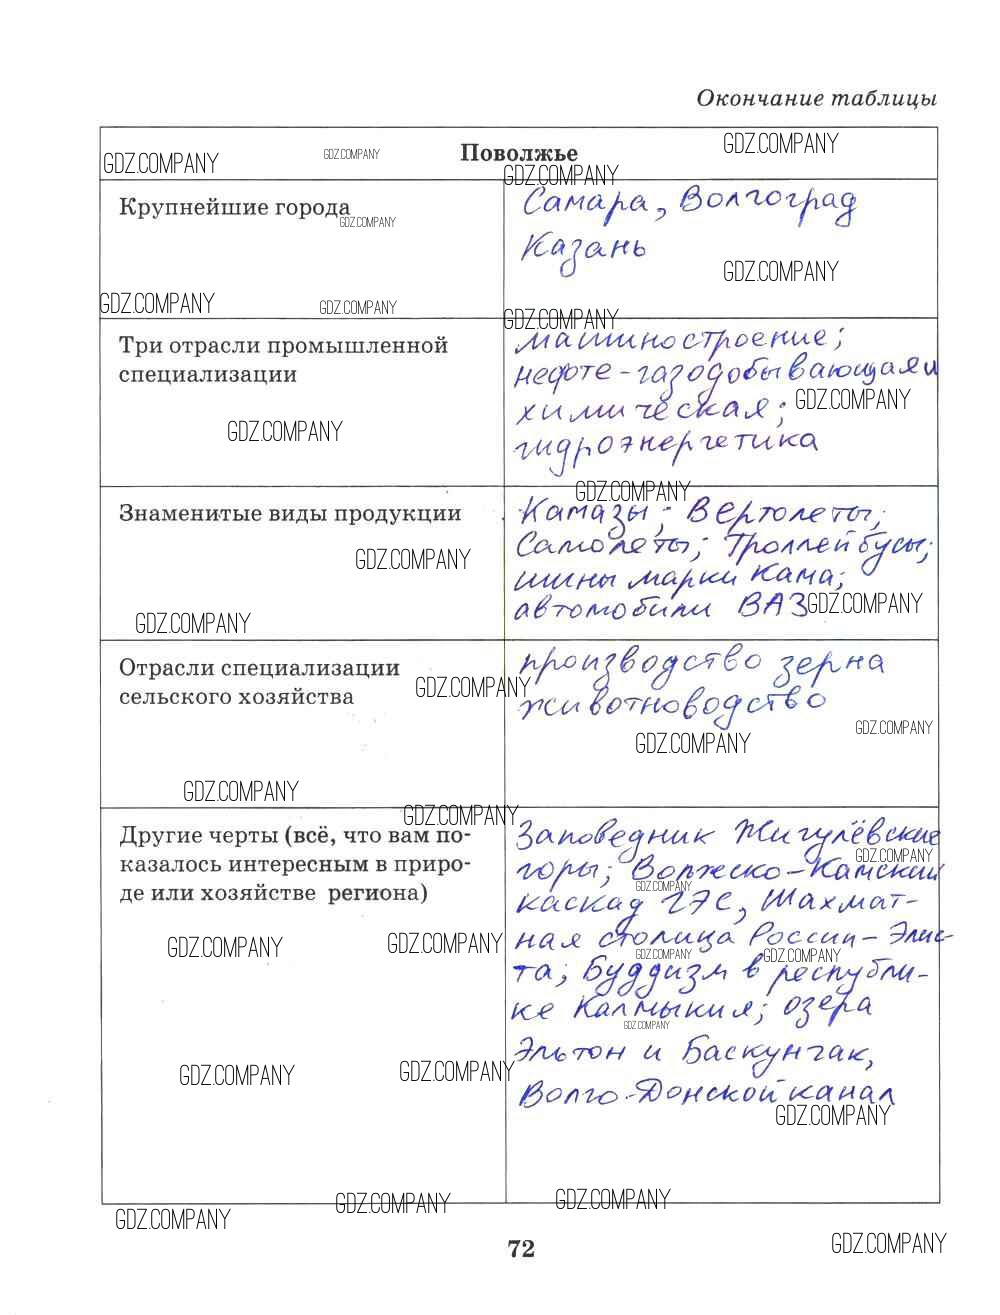 Окончание таблицы
Поволжье
Крупнейшие города
Самара, Волгоград
Казань
Три отрасли промышленной
специализации
машиностроение;
нефте-газодобывающая и
химическая;
гидроэнергетика
Знаменитые виды продукции
Камазы; Вертолеты;
Самолеты; Троллейбусы;
шины марки Кама;
автомобили ВАЗ
Отрасли специализации
сельского хозяйства
производство зерна
животноводство
Другие черты (всё, что вам по-
казалось интересным в приро-
де или хозяйстве региона)
Заповедник Жигулёвские
горы; Волжско-Камский
каскад ГЭС, Шахмат-
ная столица России-Элис-
та; Буддизм в республи-
ке Калмыкия; озера
Эльтон и Баскунчак,
Волго-Донской канал
72
GDZ.COMPANY